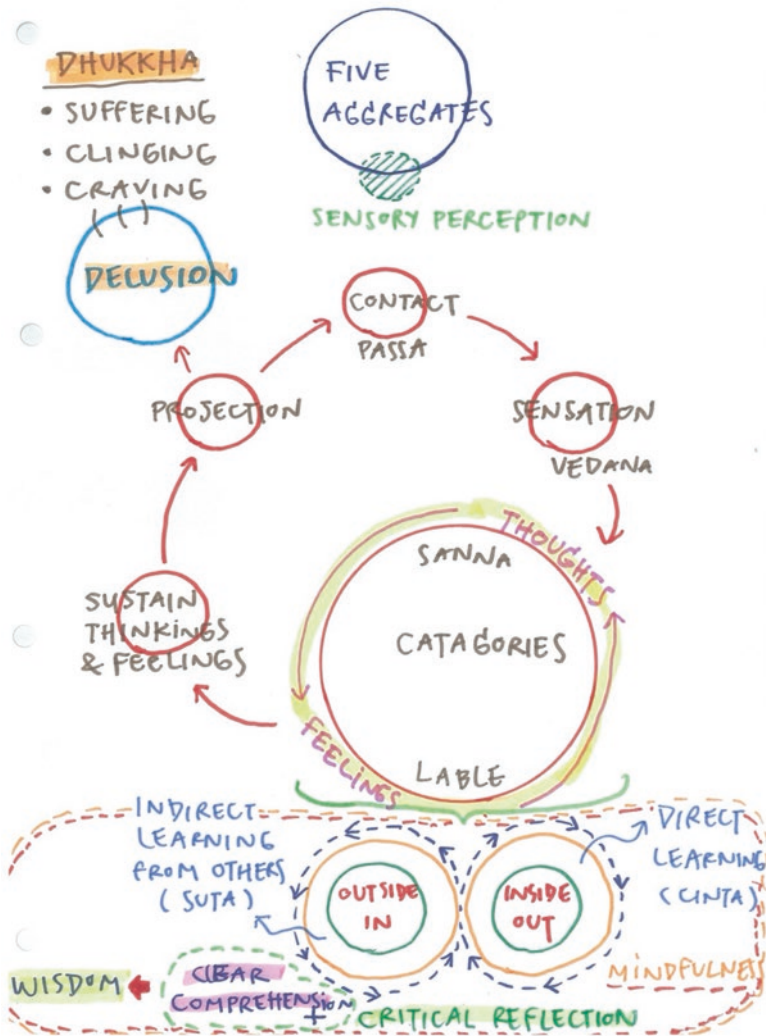 DHUKKHA
• SUFFERING
• CLINGING
• CRAVING
DELUSION
FIVE
AGGREGATES
SENSORY PERCEPTION
CONTACT
PASSA
SENSATION
VEDANA
PROJECTION
SUSTAIN
THINKINGS
& FEELINGS
THOUGHTS
SANNA
CATAGORIES
LABLE
FEELINGS
INDIRECT
LEARNING
FROM OTHERS
(SUTA)
OUTSIDE
IN
INSIDE
OUT
DIRECT
LEARNING
(CINTA)
MINDFULNESS
WISDOM
CLEAR
COMPREHENSION
+
CRITICAL REFLECTION